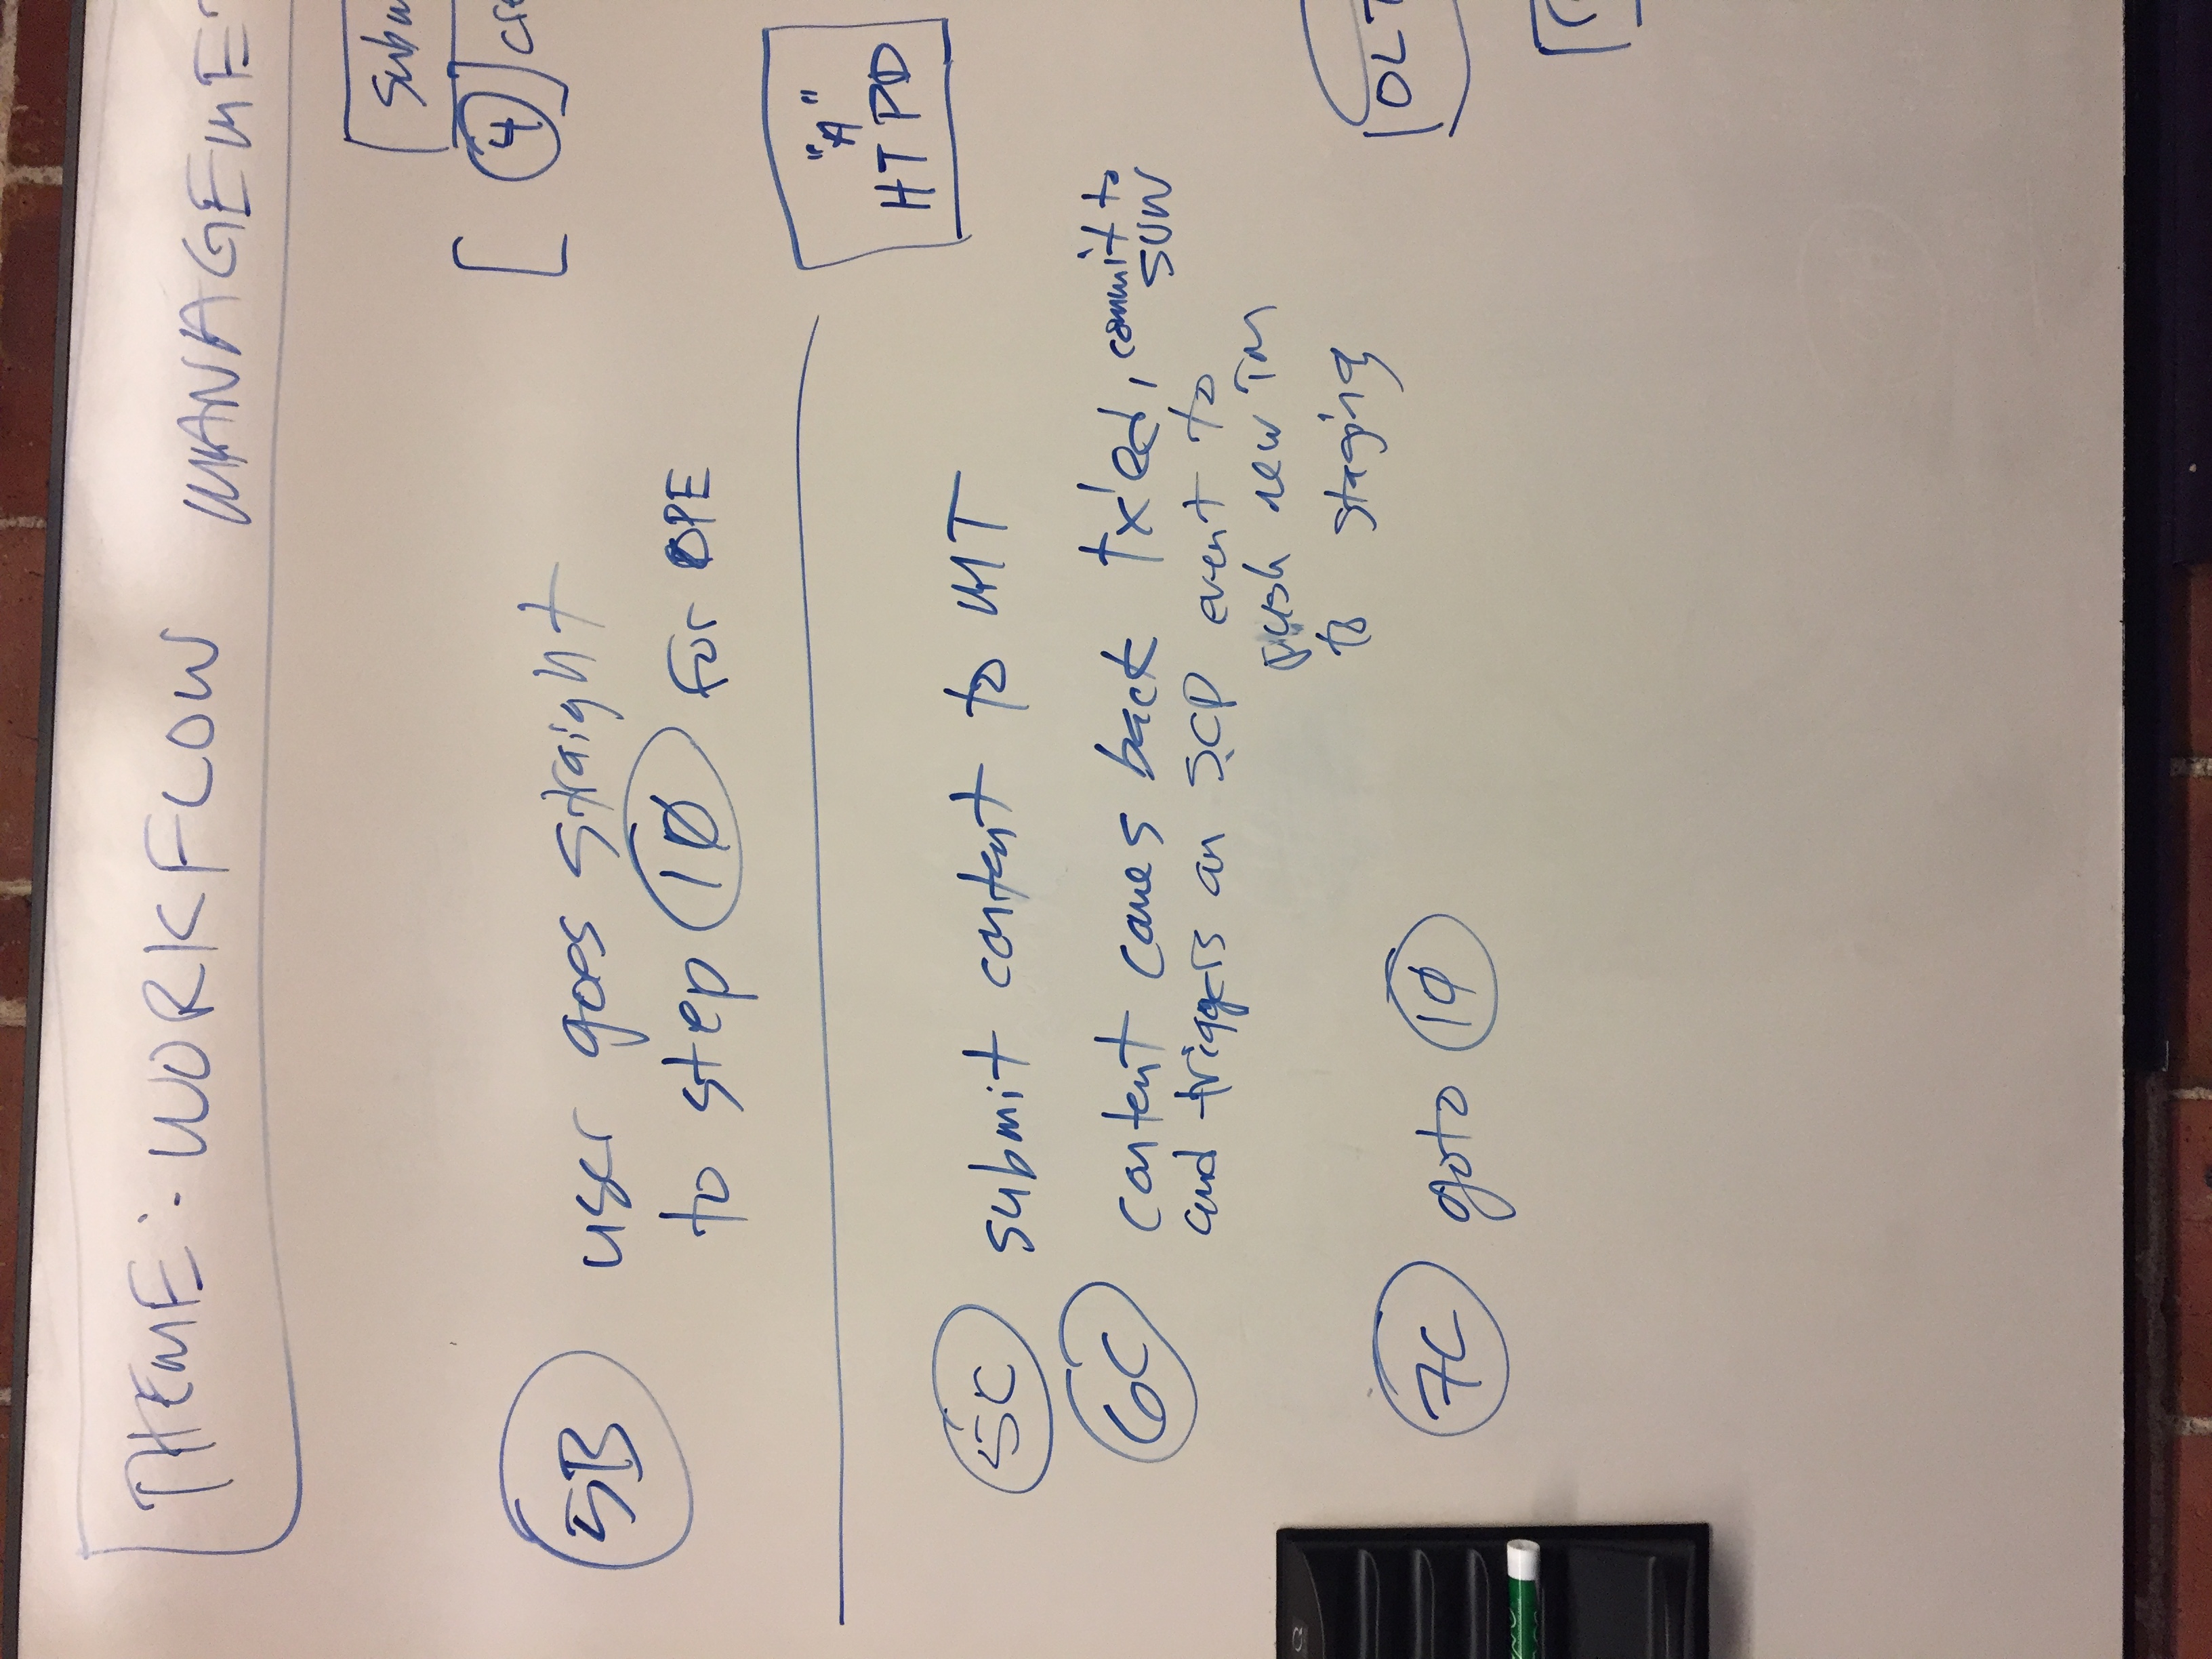 THEME: WORKFLOW MANAGEME
Subm
4 cre
5B user goes straight
to step 10 for OPE
"A"
HTPD
5C submit content to MT
6C content comes back tx'ed, commit to
SVN
and triggers an SCP event to
push new TM
to staging
OLT
7C goto 10